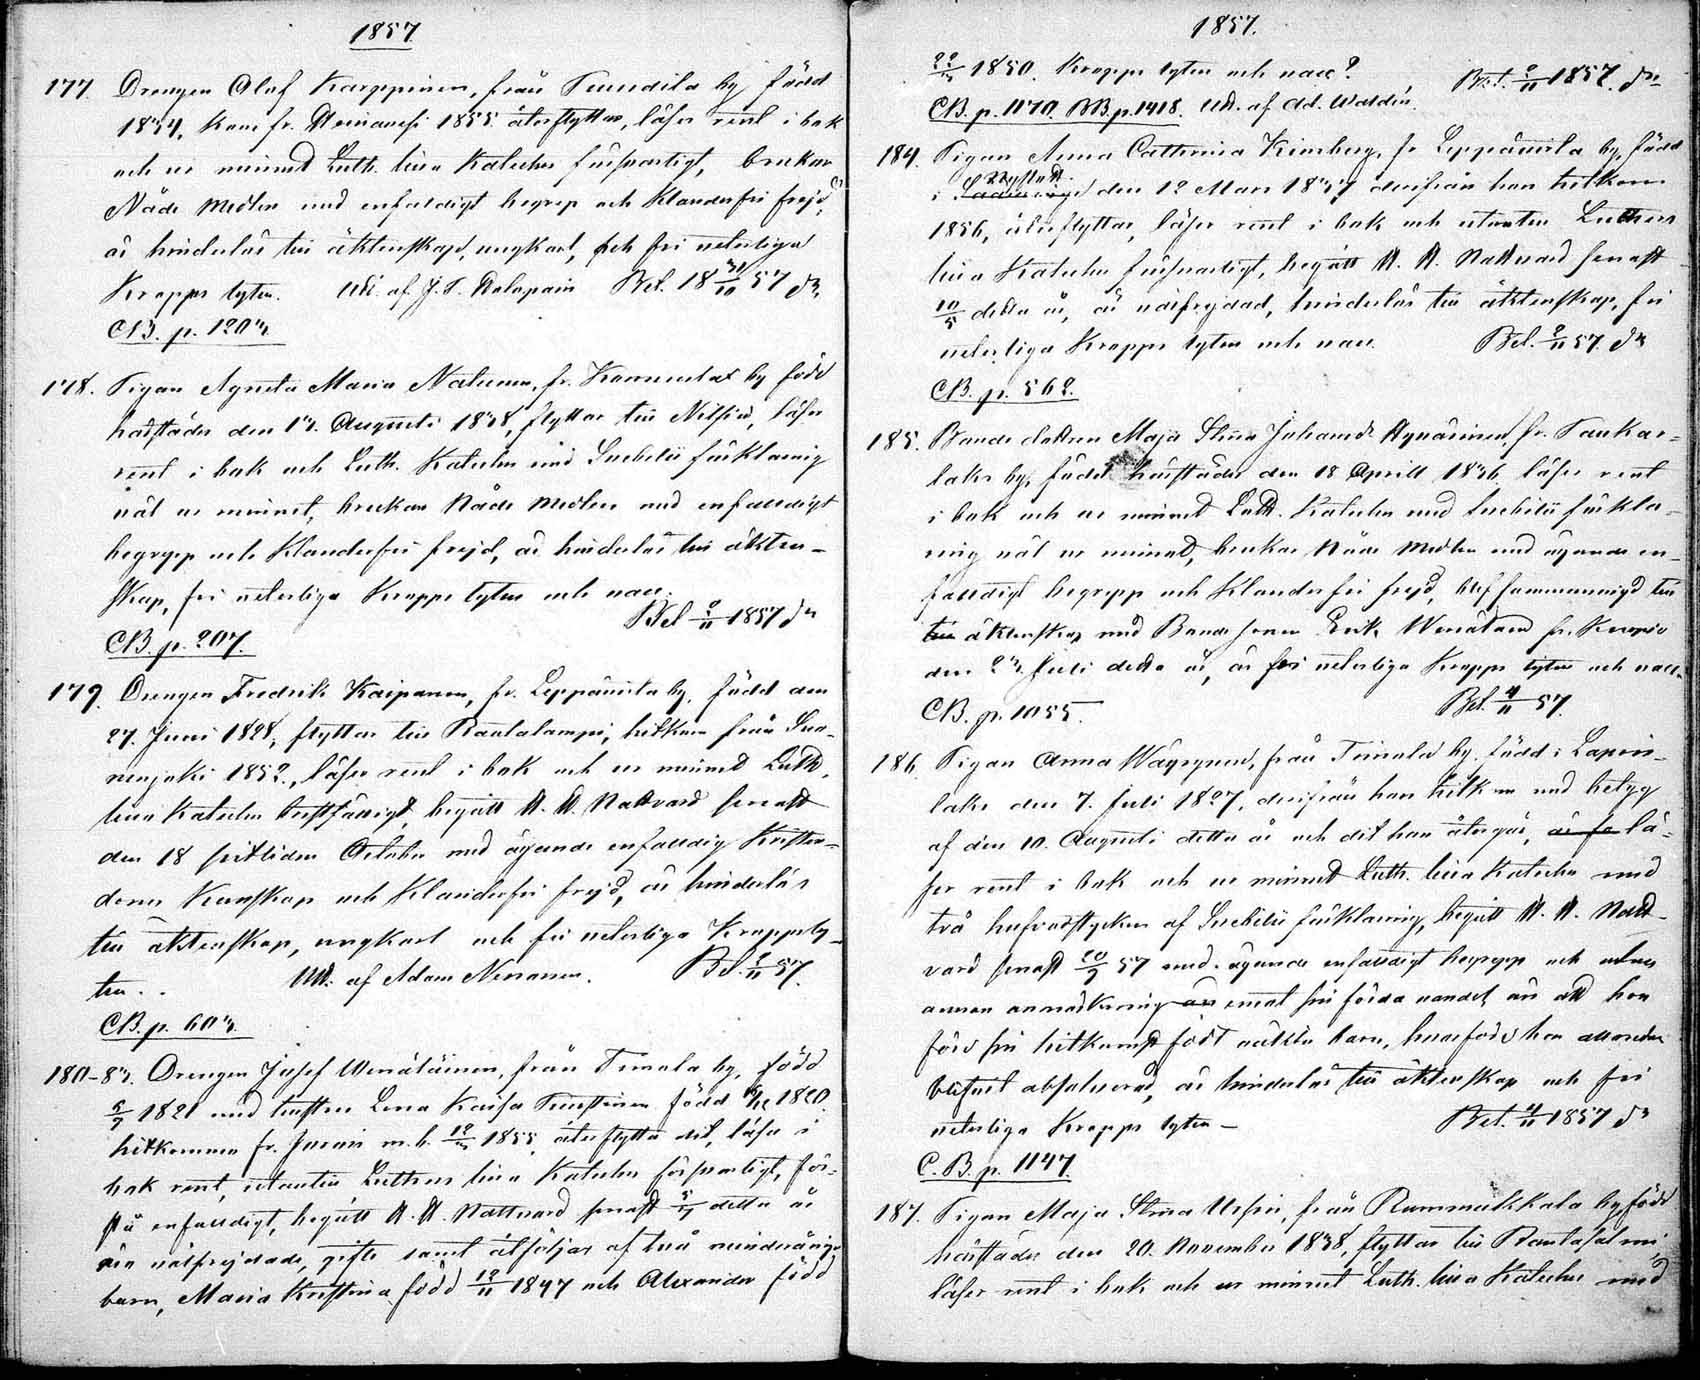 1857
177. Drengen Olof Karppinen, från Tuudila by född
1834, kom fr. Heinävesi 1855 återflyttar, läser rent i bok
och ur minnet Luth. lilla Kateches försvarligt, brukar
Nåde medlen med enfaldigt begrep och klanderfri frejd,
är hinderlös till äktenskap, ungkarl, och fri veterliga
Kropps lyten. Utt. af J. F. Bet. 18 31/10 57
CB. p. 1203.
178. Pigan Agneta Maria Natunen, fr. by född
härstädes den 13. Augusti 1838, flyttar till Nilsiä, läser
rent i bok och Luth. Kateches med Svebelii förklaring
väl ur minnet, brukar Nåde medlen med enfaldigt
begrepp och klanderfri frejd, är hinderlös till äkten-
skap, fri veterliga Kropps lyten och vacc.
Bet 2/11 1857
CB. p. 207.
179. Drengen Fredrik Kaipanen, fr. Leppävirta by, född den
27. Juni 1828, flyttar till Rautalampi, hitkom från Suo-
nenjoki 1852, läser rent i bok och ur minnet Luth.
lilla Kateches bristfälligt, begått H. H. Nattvard senast
den 18 sistliden October med ägande enfaldig Kristen-
doms Kunskap och Klanderfri frejd, är hinderlös
till äktenskap, ungkarl och fri veterliga Kroppsly-
ten. Utt. af Adam Nenonen. Bet. 2/11 57.
CB. p. 603.
180-83. Drengen Josef Venäläinen, från Timola by, född
5/7 1821 med hustru Lena Kaisa född 1820.
hitkommen fr. Jorois m. b. 1855, återflytta dit, läser i
bok rent, utantill Luthers lilla Kateches försvarligt, för-
stå enfaldigt, begått H. H. Nattvard senast detta år
äro välfrejdade, gifte samt åtföljas af två minderåriga
barn, Maria Kristina född 12/11 1847 och Alexander född
1857.
1850. Kropps lyten och vacc? Bet. 2/11 1857.
CB. p. 1170. BB. p. 1418. Utt. af Ad. Waldén.
184. Pigan Anna Catharina Kimberg, fr Leppävirta by, född
i Nyslott den 12 Mars 1837 derifrån hon hitkom
1856, återflyttar, läser rent i bok och utantill Luthers
lilla Kateches försvarligt, begått H. H. Nattvard senast
10/5 detta år, är välfrejdad, hinderlös till äktenskap, fri
veterliga Kropps lyten och vacc. Bet. 2/11 57.
CB. p. 562.
185. Bonde dottren Maja Stina Johansdr Hynönen, fr. Saukar-
laks by, född härstädes den 18 Aprill 1836 läser rent
i bok och ur minnet Luth. Kateches med Svebelii förkla-
ring väl ur minnet, brukar Nåde medlen med ägande en-
faldigt begrepp och klanderfri frejd, blef sammanvigd till
till äktenskap med Bonde sonen Erik fr. Kuopio
den 23 Juli detta år, är fri veterliga Kropps lyten och vacc.
CB. p. 1055. Bet. 4/11 57.
186. Pigan Anna Väyrynen, från Timola by, född i Lapin-
laks den 7. Juli 1827, derifrån hon hitkom med betyg
af den 10. Augusti detta år och dit hon återgår, är fr lä-
ser rent i bok och ur minnet Luth. lilla Kateches med
två hufvudstycken af Svebelii förklaring, begått H. H. Natt-
vard senast 20/9 57 med ägande enfaldigt begrepp och utan
annan anmärkning än emot sin förda vandel än att hon
före sin hitkomst född oäkta barn, hvarföre hon allaredan
blifvit absolverad, är hinderlös till äktenskap och fri
veterliga Kropps lyten – Bet. 4/11 1857
C. B. p. 1147.
187. Pigan Maja Stina Ursin, från Rummukkala by, född
härstädes den 20. November 1838, flyttar till Rantasalmi,
läser rent i bok och ur minnet Luth. lilla Kateches med